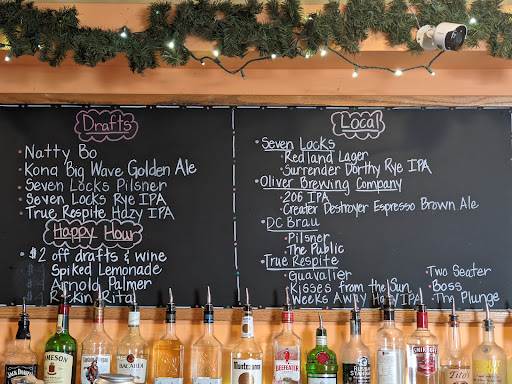 Drafts
Natty Bo
Kona Big Wave Golden Ale
Seven Locks Pilsner
Seven Locks Rye IPA
True Respite Hazy IPA
Happy Hour
$2 off drafts & wine
Spiked Lemonade
Arnold Palmer
Rita
Local
Seven Locks
Redland Lager
Surrender Dorthy Rye IPA
Oliver Brewing Company
206 IPA
Creater Destroyer Espresso Brown Ale
DC Brau
Pilsner
The Public
True Respite
Guavalier
Kisses from the Sun
Weeks Away IPA
Two Seater
Boss
The Plunge
JAMESON
BACARDI
BEEFEATER
SMIRNOFF
Tito's